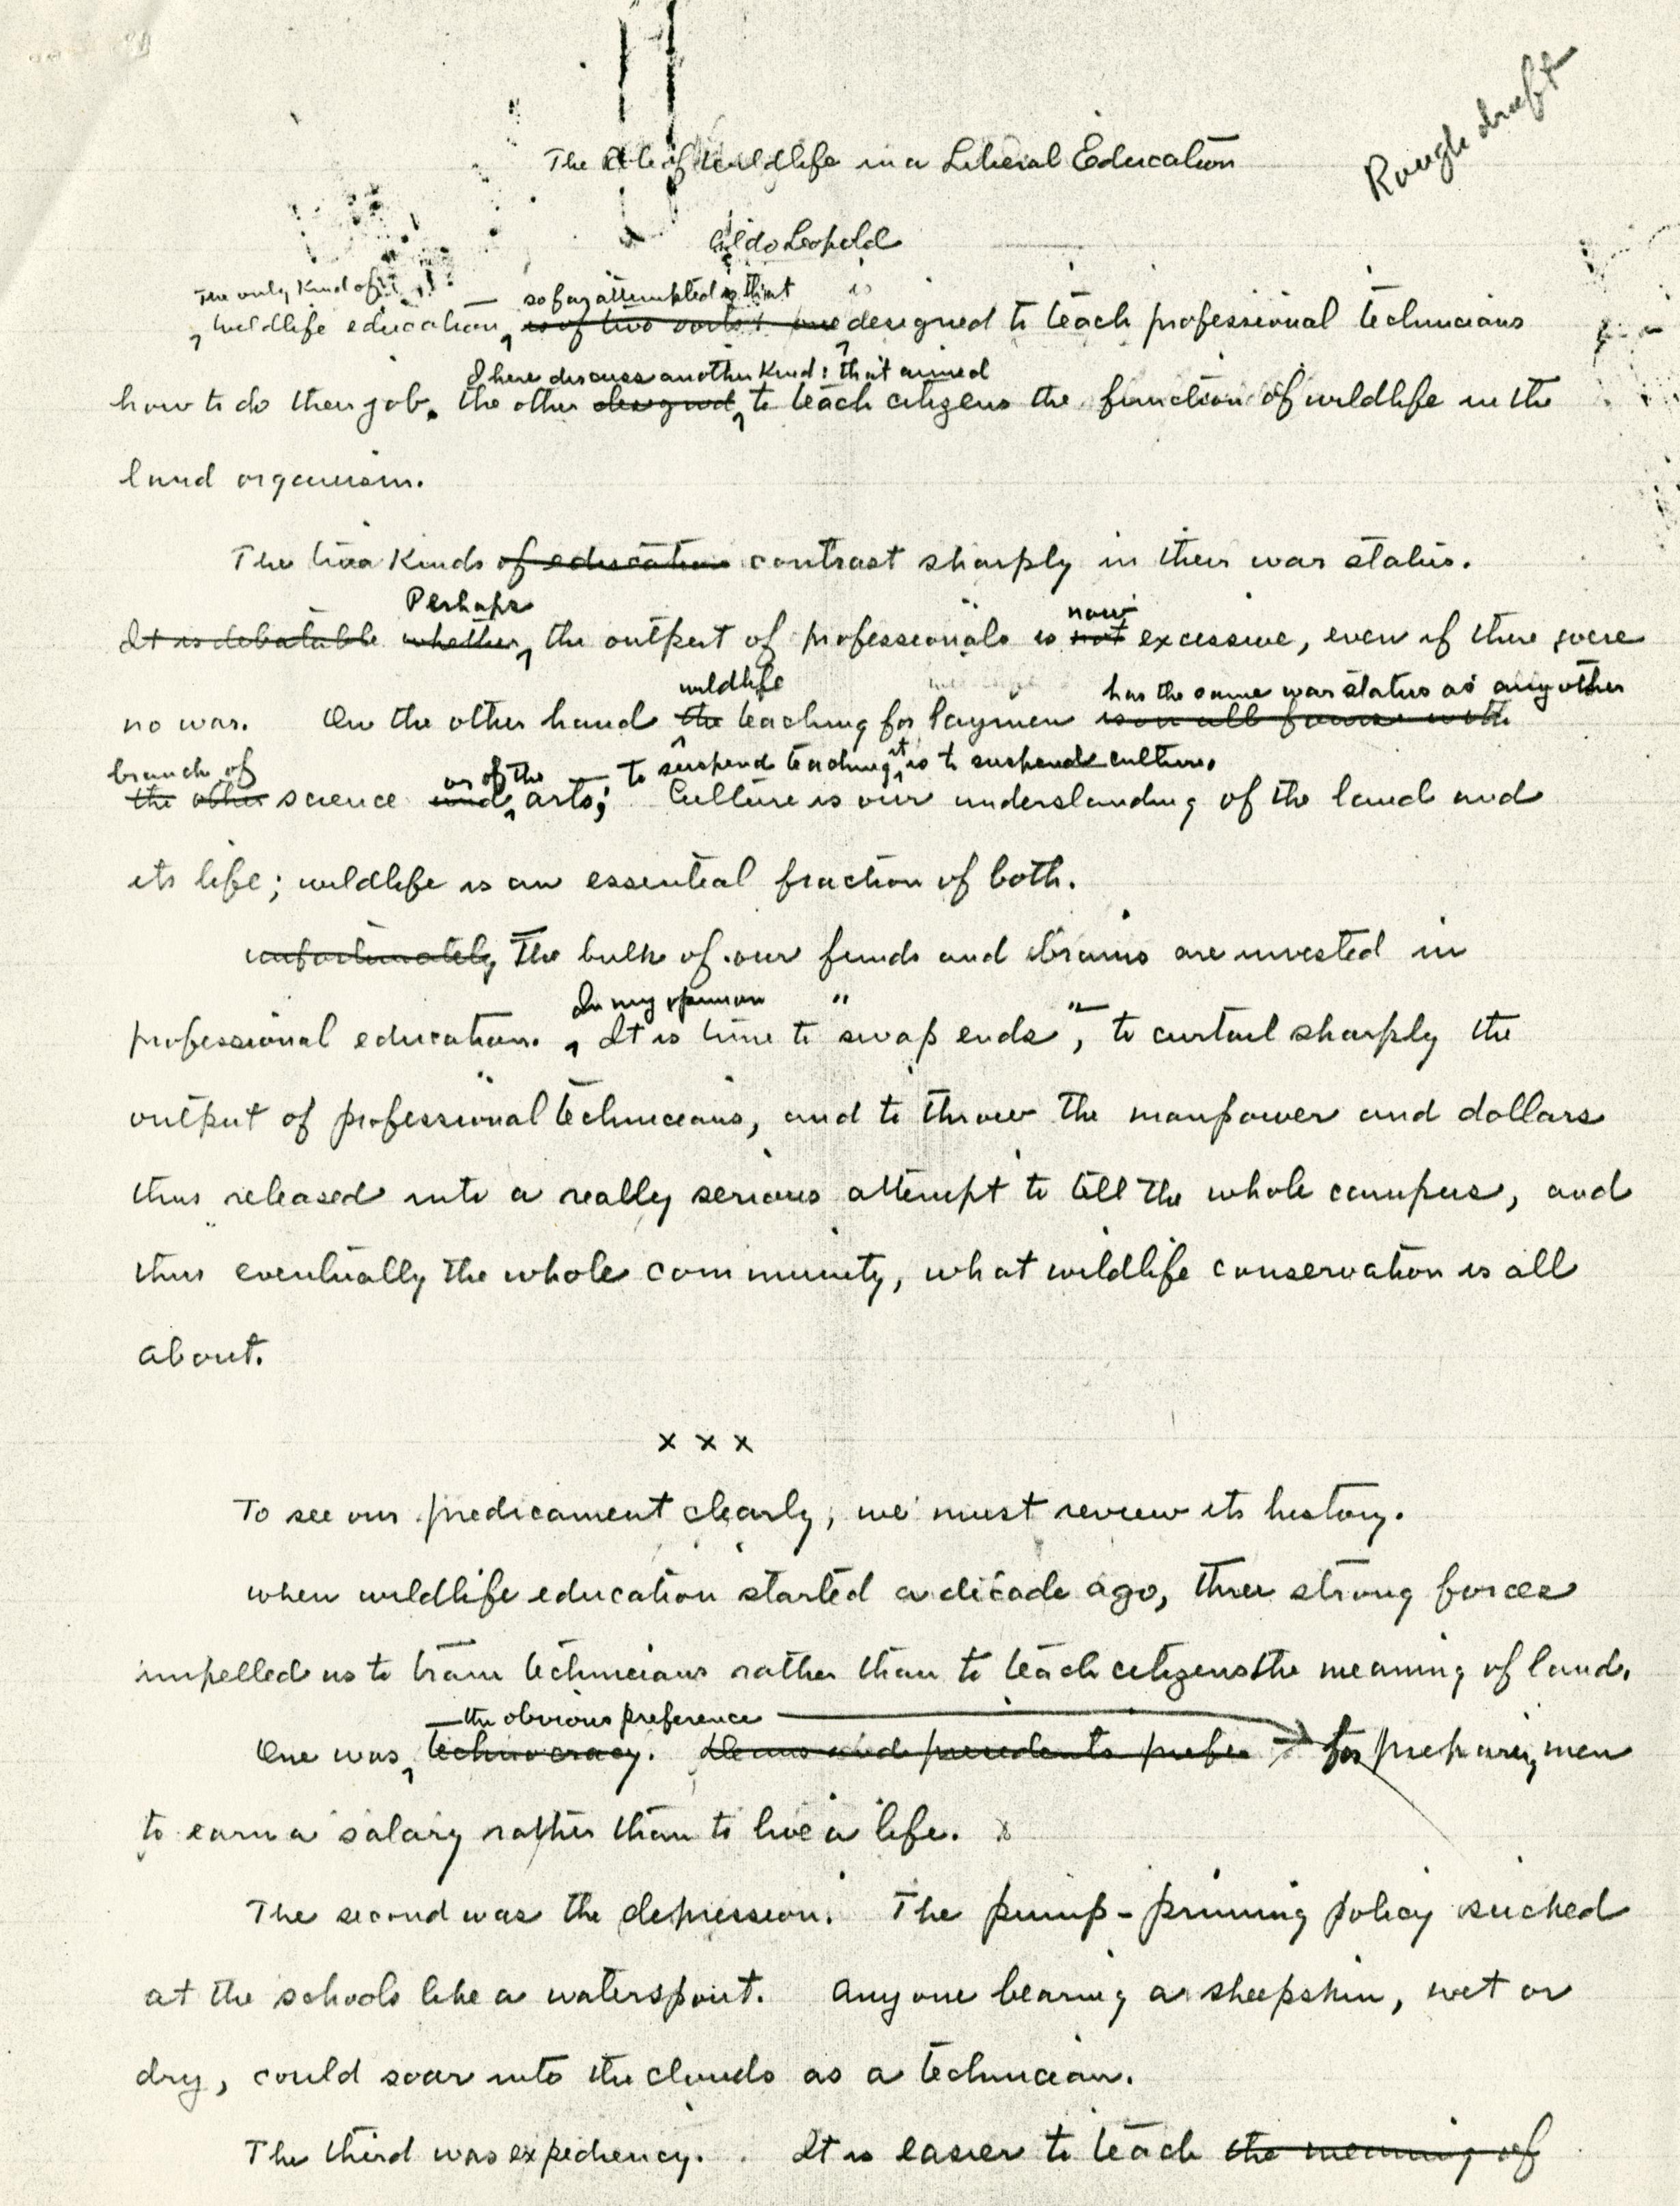 Rough draft
The Role of Wildlife in a Liberal Education
Aldo Leopold
The only kind of — so far attempted is that is
Wildlife education, is of two sorts: one designed to teach professional technicians
I here discuss another kind: that aimed
how to do their job. the other designed to teach citizens the function of wildlife in the
land organism.
The two kinds of education contrast sharply in their war status.
Perhaps now
It is debatable whether, the output of professionals is not excessive, even if there were
wildlife has the same war status as any other
no war. On the other hand the teaching for laymen is on all fours with
branch of or of the To suspend teaching it is to suspend culture.
the other science and arts; Culture is our understanding of the land and
its life; wildlife is an essential fraction of both.
unfortunately The bulk of our funds and brains are invested in
In my opinion " "
professional education. It is time to swap ends, to curtail sharply the
output of professional technicians, and to throw the manpower and dollars
thus released into a really serious attempt to tell the whole campus, and
thus eventually the whole community, what wildlife conservation is all
about.
x x x
To see our predicament clearly, we must review its history.
When wildlife education started a decade ago, three strong forces
impelled us to train technicians rather than to teach citizens the meaning of land.
— the obvious preference
One was technocracy. Deans and presidents prefer for preparing men
to earn a salary rather than to live a life.
The second was the depression. The pump-priming policy sucked
at the schools like a waterspout. Anyone bearing a sheepskin, wet or
dry, could soar into the clouds as a technician.
The third was expediency. It is easier to teach the meaning of